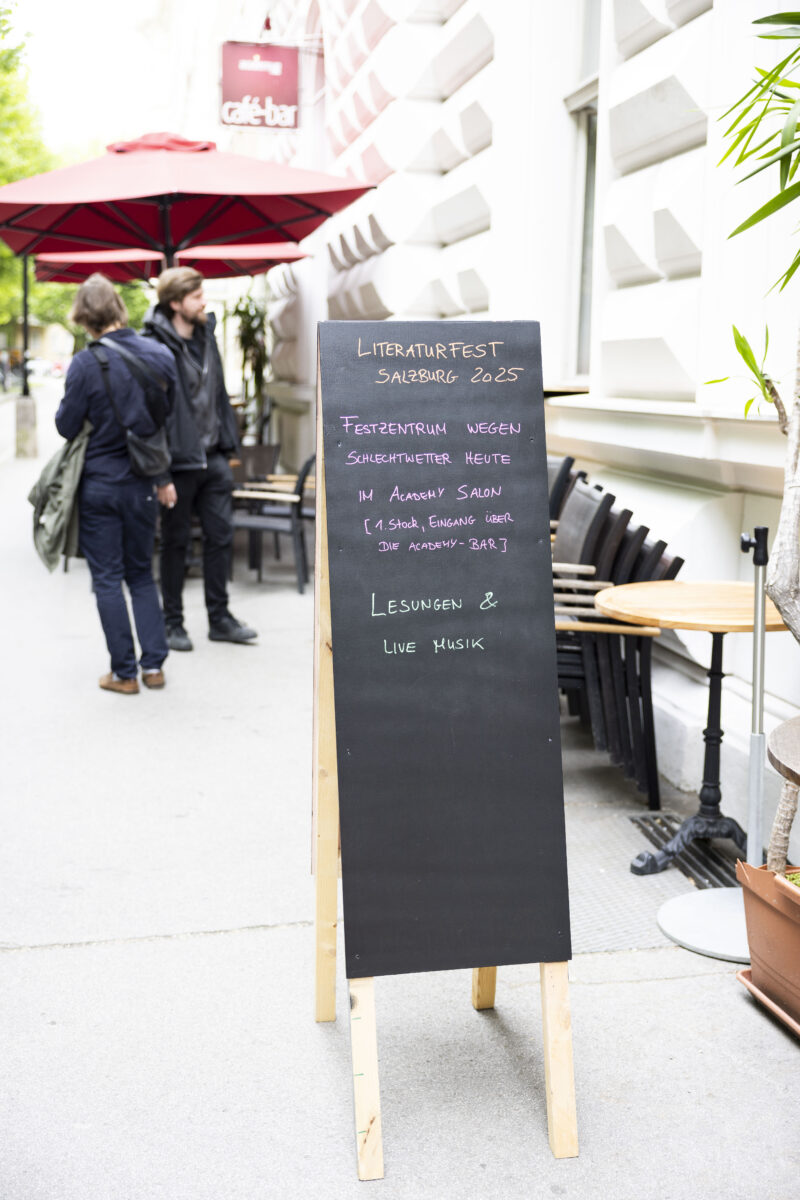 café-bar
LITERATURFEST
SALZBURG 2025
FESTZENTRUM WEGEN
SCHLECHTWETTER HEUTE
IM ACADEMY SALON
[1. STOCK, EINGANG ÜBER
DIE ACADEMY-BAR]
LESUNGEN &
LIVE MUSIK